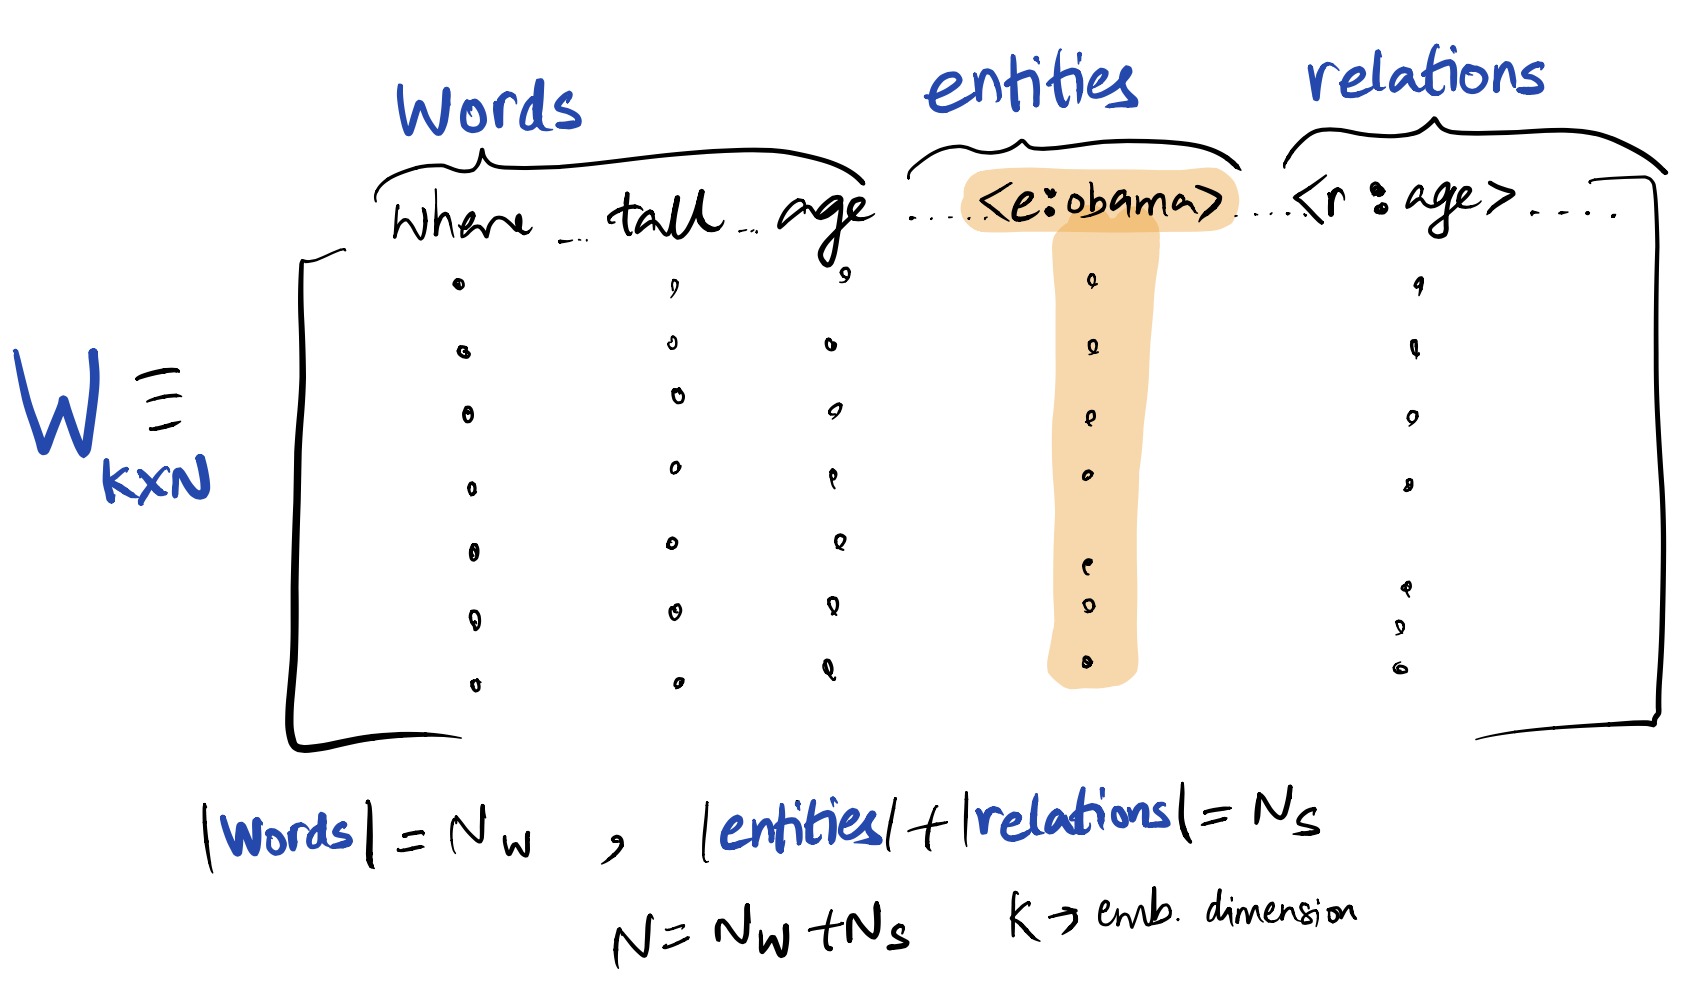 Words entities relations
where ... tall ... age ...... <e:obama> ...... <r:age> .....
W ≡
K×N
|Words| = N_W , |entities| + |relations| = N_S
N = N_W + N_S K → emb. dimension